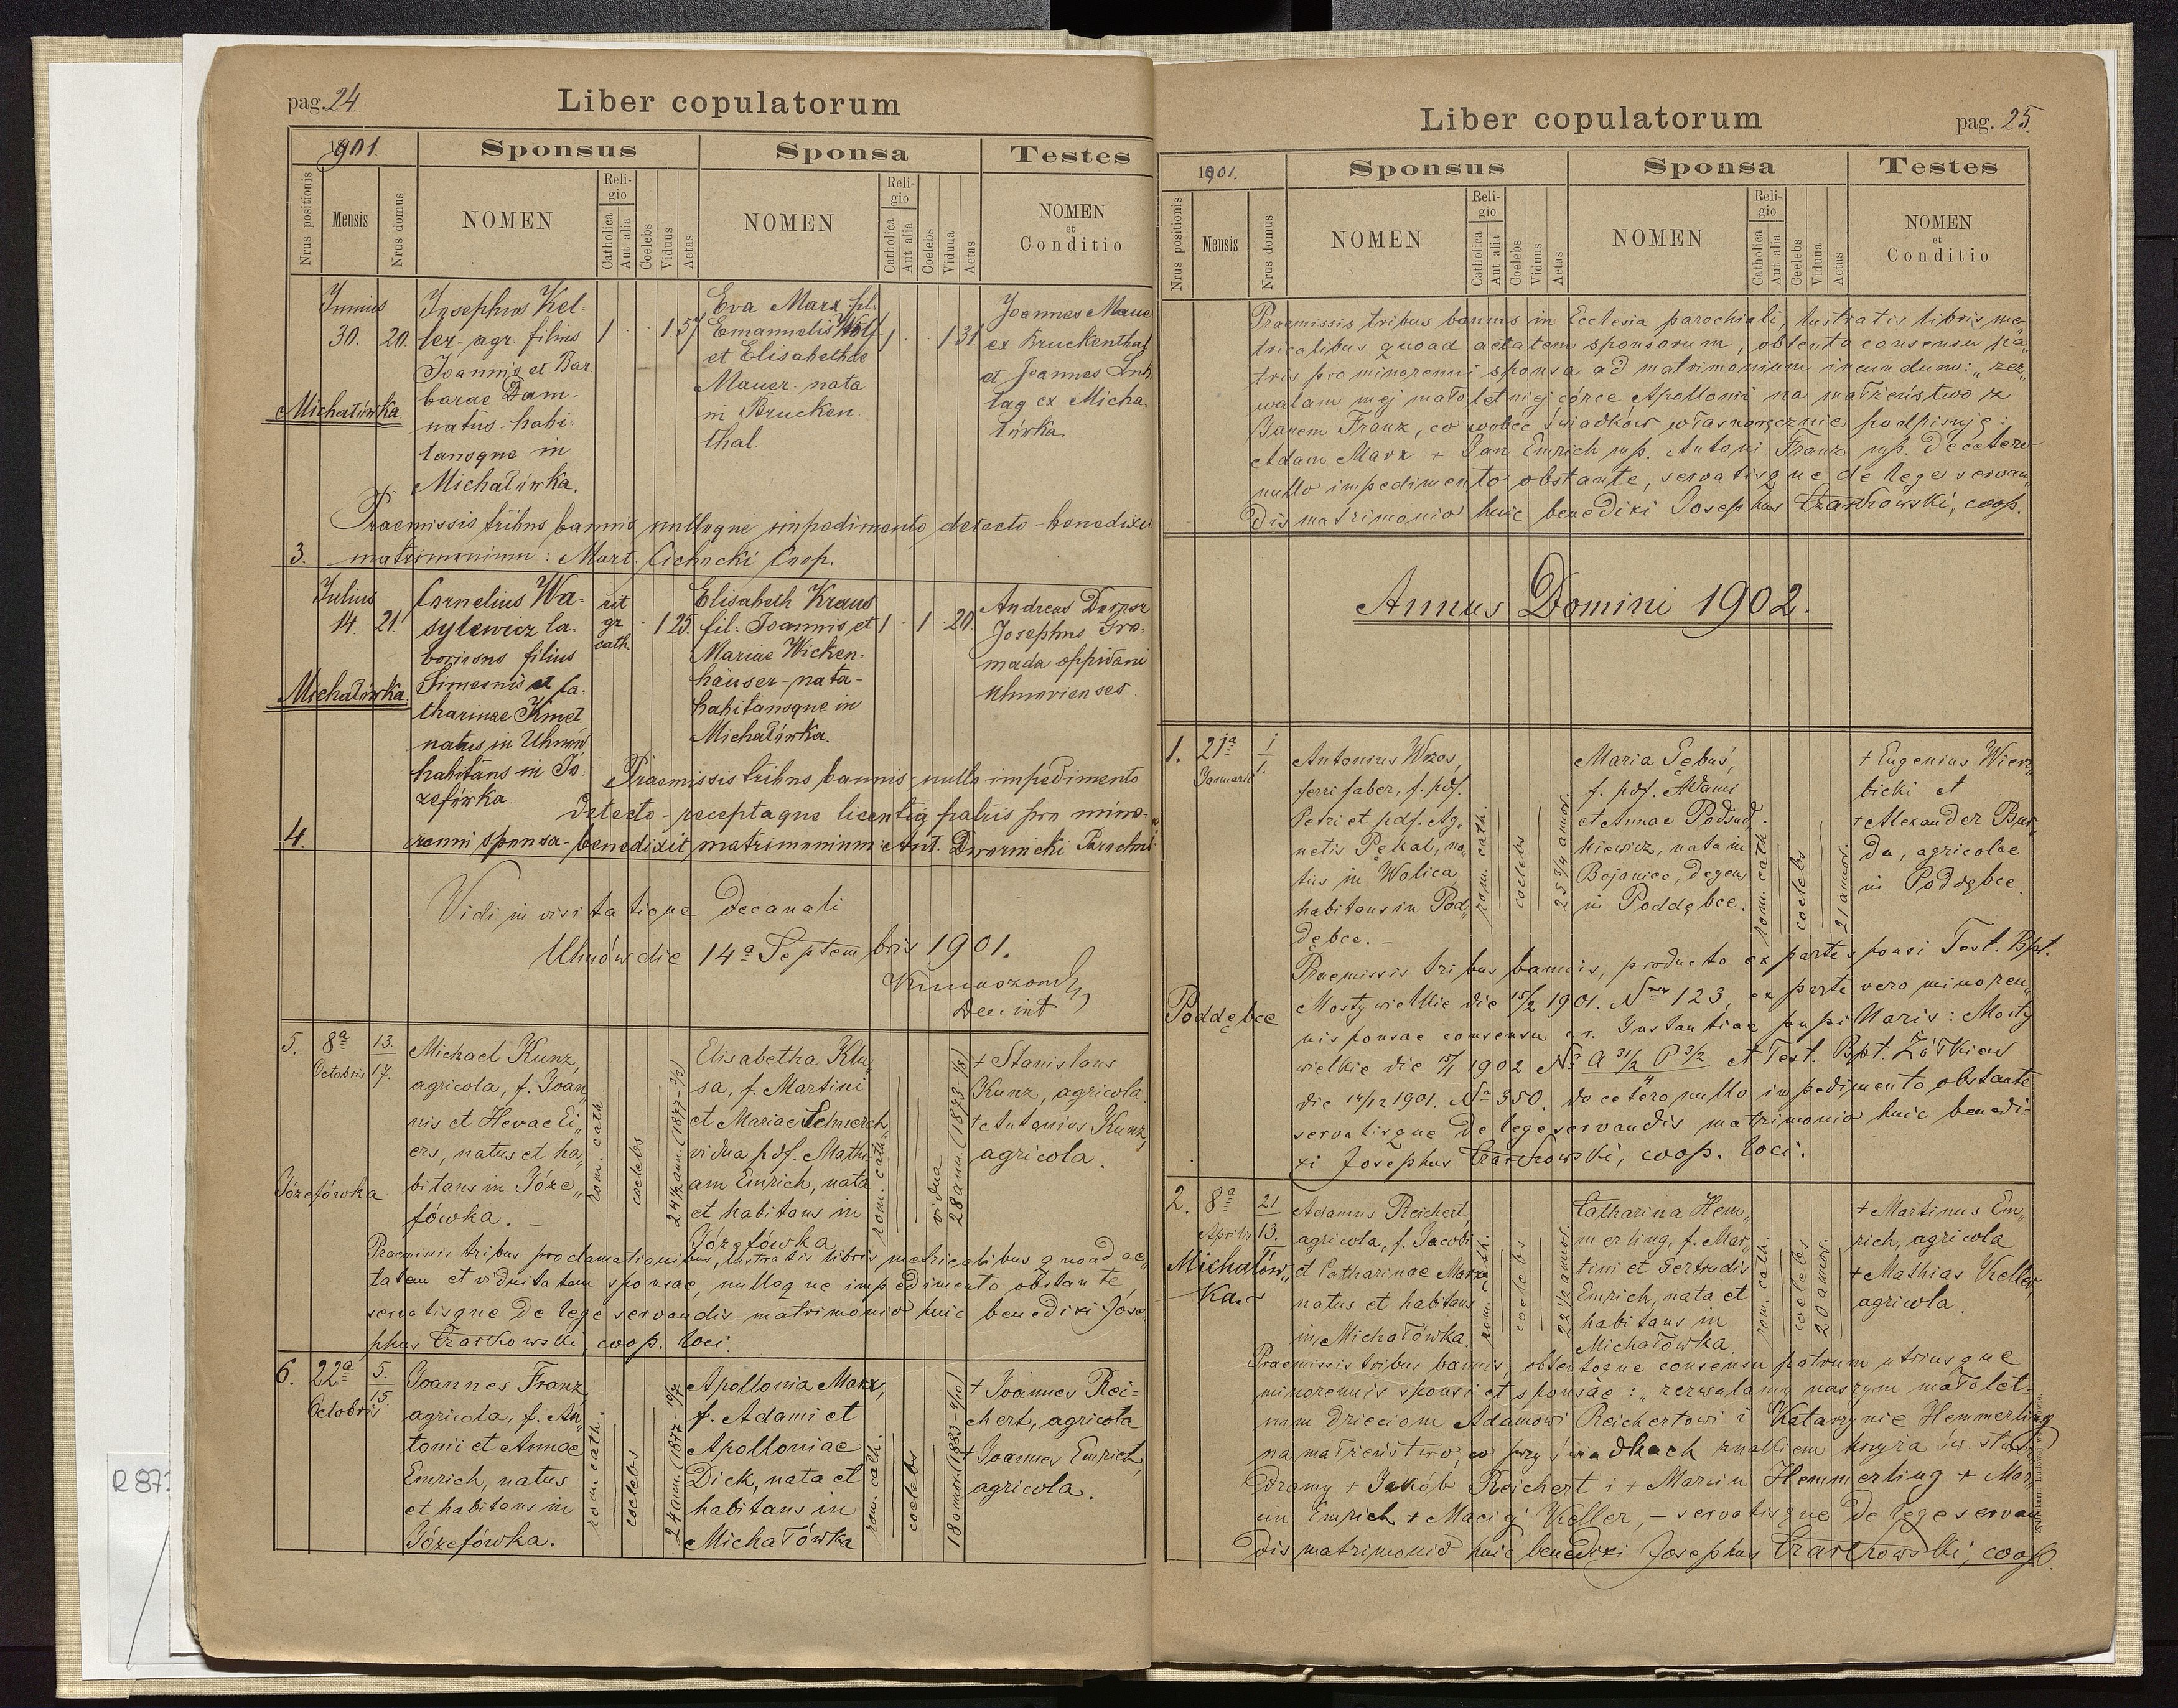 pag. 24
Liber copulatorum
1901.
Sponsus
Sponsa
Testes
Nrus positionis
Mensis
Nrus domus
NOMEN
Religio
Catholica
Aut alia
Coelebs
Viduus
Aetas
NOMEN
Religio
Catholica
Aut alia
Coelebs
Vidua
Aetas
NOMEN
et
Conditio
Junius
30. 20
Michałówka
Josephus Kel-
ler agr. filius
Joannis et Bar
barae Dam-
natus habi-
tansque in
Michałówka.
1 1 57
Eva Marx fil.
Emanuelis Wolf
et Elisabethae
Mauer nata
in Brucken
thal.
1 1 31
Joannes Maue
ex Bruckenthal
et Joannes
ex Micha
łówka.
Praemissis tribus bannis nulloque impedimento detecto benedixit
3. matrimonium: Mart. Cichocki Coop.
Julius
14. 21.
Michałówka
Cornelius Wa-
sylewicz la-
borions filius
Simeonis et Ca-
tharinae Kmet
natus in Uhnów
habitans in Jó-
zefówka.
rit
gr.
cath
1 25.
Elisabeth Kraus
fil. Joannis et
Mariae Wicken-
häuser nata
habitansque in
Michałówka.
1 1 20.
Andreas
Josephus Gro-
mada oppidani
uhnovienses.
Praemissis tribus bannis nullo impedimento
detecto receptaque licentia patris pro mino-
4. renni sponsa benedixit matrimonium Ant. Dwornicki Parochus
Vidi in visitatione decanali
Uhnów die 14a Septembris 1901.
Dec. int
5. 8a
Octobris
13.
17.
Józefówka
Michael Kunz,
agricola, f. Joan„
nis et Hevae Ei„
ers, natus et ha„
bitans in Józe„
fówka. –
rom. cath.
coelebs
24½ ann. (1877-3/3)
Elisabetha Klu„
sa, f. Martini
et Mariae Schmerch
vidua pdf. Mathi
am Emrich, nata
et habitans in
Józefówka
rom. cath.
vidua
28 ann. (1873-1/8)
+ Stanislaus
Kunz, agricola.
+ Antonius Kunz,
agricola.
Praemissis tribus proclamationibus, lustratis libris metricalibus quoad ae„
tatem et viduitatem sponsae, nulloque impedimento obstante,
servatisque de lege servandis matrimonio huic benedixi Jóse„
phus Czarkowski, coop. loci.
6. 22a
Octobris
5.
15.
Joannes Franz
agricola, f. An„
tonii et Annae
Emrich, natus
et habitans in
Józefówka.
rom. cath.
coelebs
24 ann. (1877-10/7
Apollonia Marx,
f. Adami et
Apolloniae
Dick, nata et
habitans in
Michałówka
rom. cath.
coelebs
18 annor. (1883-4/10)
+ Joannes Rei-
chert, agricola
+ Joannes Emrich,
agricola.
Liber copulatorum
pag. 25.
1901.
Sponsus
Sponsa
Testes
Nrus positionis
Mensis
Nrus domus
NOMEN
Religio
Catholica
Aut alia
Coelebs
Viduus
Aetas
NOMEN
Religio
Catholica
Aut alia
Coelebs
Vidua
Aetas
NOMEN
et
Conditio
Praemissis tribus bannis in Ecclesia parochiali, lustratis libris me„
tricalibus quoad aetatem sponsorum, obtento consensu pa„
tris pro minorenni sponsa ad matrimonium ineundum: „zez„
walam mej małoletniej córce Apollonii na małżeństwo z
Janem Franz, co wobec świadków własnoręcznie podpisuję:
Adam Marx + Jan Emrich mp. Antoni Franz mp. De cetero
nullo impedimento obstante, servatisque de lege servan„
dis matrimonio huic benedixi Josephus Czarkowski, coop.
Annus Domini 1902.
1. 21a
Januarii
1
1.
Poddębce
Antonius Wrzos,
ferri faber, f. pdf.
Petri et pdf. Ag„
netis Pękal, na„
tus in Wolica
habitans in Pod„
dębce. –
rom. cath.
coelebs
25 3/4 annor.
Maria Gębuś,
f. pdf. Adami
et Annae Podsud
kiewicz, nata in
Bojaniec, degens
in Poddębce.
rom. cath.
coelebs
21 annor.
+ Eugenius Wierz„
bicki et
+ Alexander Bur„
da, agricolae
in Poddębce.
Praemissis tribus bannis, producto ex parte sponsi Test. Bpt.
Mosty wielkie die 15/2 1901. Nrus 123, ex parte vero minoren„
nis ponsae consensu cr. Instantiae pupillaris: Mosty
wielkie die 15/1 1902 Na A 31/2 P 3/2 et Test. Bpt. Żółkiew
die 14/12 1901. Na 350. de cetero nullo impedimento obstante
servatisque de lege servandis matrimonio huic benedi-
xi Josephus Czarkowski, coop. loci.
2. 8a
Aprilis
21
13.
Michałów„
ka
Adamus Reichert,
agricola, f. Jacobi
et Catharinae Marx
natus et habitans
in Michałówka.
rom. cath.
coelebs
22 ½ annor.
Catharina Hem„
merling, f. Mar„
tini et Gertrudis
Emrich, nata et
habitans in
Michałówka.
rom. cath.
coelebs
20 annor.
+ Martinus Em„
rich, agricola
+ Mathias Keller,
agricola.
Praemissis tribus bannis, obtentoque consensu patrum utriusque
minorennis sponsi et sponsae: „zezwalamy naszym małolet-
nim dzieciom Adamowi Reichertowi i Katarzynie Hemmerling
na małżeństwo, co przy świadkach znakiem krzyża św. stwier
dzamy + Jakób Reichert i + Marcin Hemmerling + Mar„
cin Emrich + Maciej Keller, – servatisque de lege servan
dis matrimonio huic benedixi Josephus Czarkowski, coop.
R 87